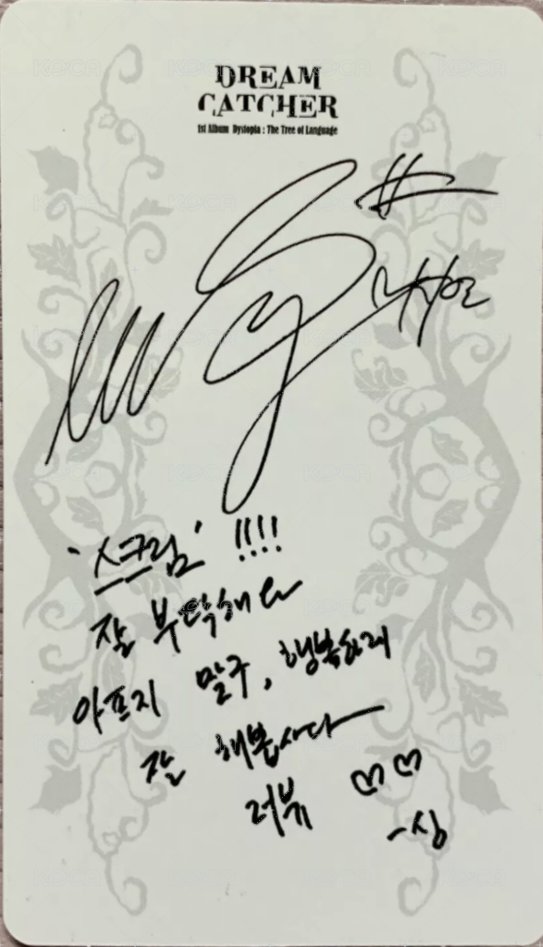 DREAM
CATCHER
1st Album Dystopia : The Tree of Language
'스크림' !!!!
잘 부탁해요
아프지 말구, 행복하게
잘 해봅시다
러뷰 ♡♡
-싱
KOCA